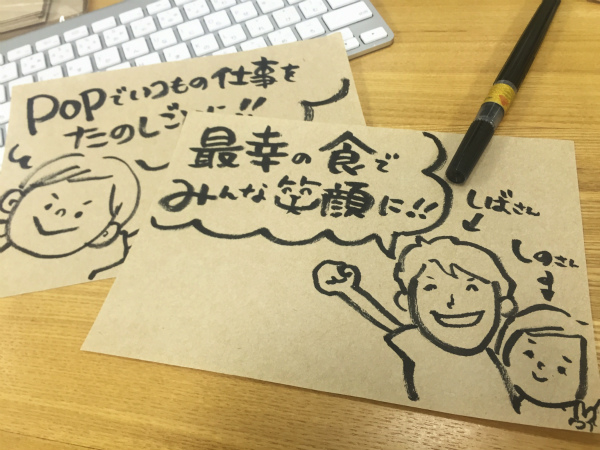 POPでいつもの仕事を
たのしごとに!!
最幸の食で
みんな笑顔に!!
しばさん
しのさん